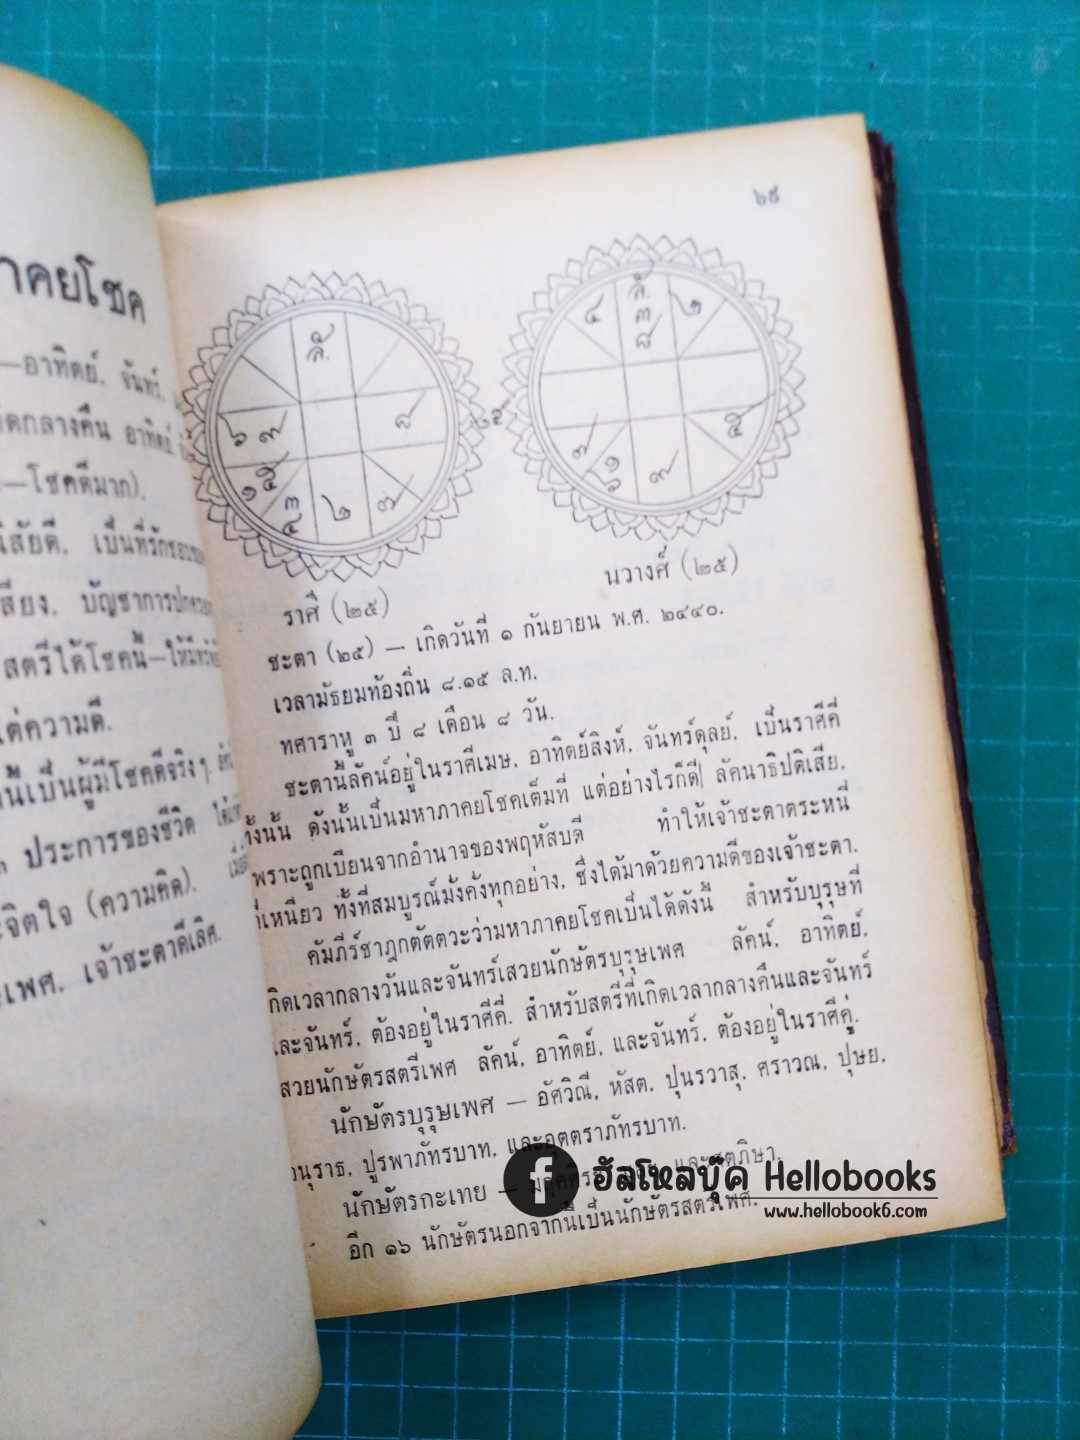 าคยโชค
—อาทิตย์. จันทร์.
กิดกลางคืน อาทิตย์
—โชคดีมาก).
นิสัยดี. เป็นที่รักชอบ
เสียง. บัญชาการปกครอง
สตรีได้โชคนี้—ให้มีทรัพย์
แต่ความดี.
นี้เป็นผู้มีโชคดีจริงๆ.
๓ ประการของชีวิต
จิตใจ (ความคิด).
เพศ. เจ้าชะตาดีเลิศ.
๖๕
ราศี (๒๕)
นวางศ์ (๒๕)
ชะตา (๒๕) — เกิดวันที่ ๑ กันยายน พ.ศ. ๒๔๔๐.
เวลามัธยมท้องถิ่น ๘.๑๕ ล.ท.
ทศาราหู ๓ ปี ๘ เดือน ๘ วัน.
ชะตานี้ลัคน์อยู่ในราศีเมษ. อาทิตย์สิงห์. จันทร์ดุลย์. เป็นราศีคี่
ทั้งนั้น ดังนั้นเป็นมหาภาคยโชคเต็มที่ แต่อย่างไรก็ดี ลัคนาธิปติเสีย.
เพราะถูกเบียนจากอำนาจของพฤหัสบดี ทำให้เจ้าชะตาตระหนี่
ถี่เหนียว ทั้งที่สมบูรณ์มั่งคั่งทุกอย่าง. ซึ่งได้มาด้วยความดีของเจ้าชะตา.
คัมภีร์ชาฎกตัตตวะว่ามหาภาคยโชคเป็นได้ดังนี้ สำหรับบุรุษที่
เกิดเวลากลางวันและจันทร์เสวยนักษัตรบุรุษเพศ ลัคน์. อาทิตย์.
และจันทร์. ต้องอยู่ในราศีคี่. สำหรับสตรีที่เกิดเวลากลางคืนและจันทร์
เสวยนักษัตรสตรีเพศ ลัคน์. อาทิตย์. และจันทร์. ต้องอยู่ในราศีคู่.
นักษัตรบุรุษเพศ — อัศวิณี. หัสต. ปุนรวาสุ. ศราวณ. ปุษย.
อนุราธ. ปูรพาภัทรบาท. และอุตตราภัทรบาท.
นักษัตรกะเทย — และสตภิษา.
อีก ๑๖ นักษัตรนอกจากนี้เป็นนักษัตรสตรีเพศ.
ฮัลโหลบุ๊ค Hellobooks
www.hellobook6.com